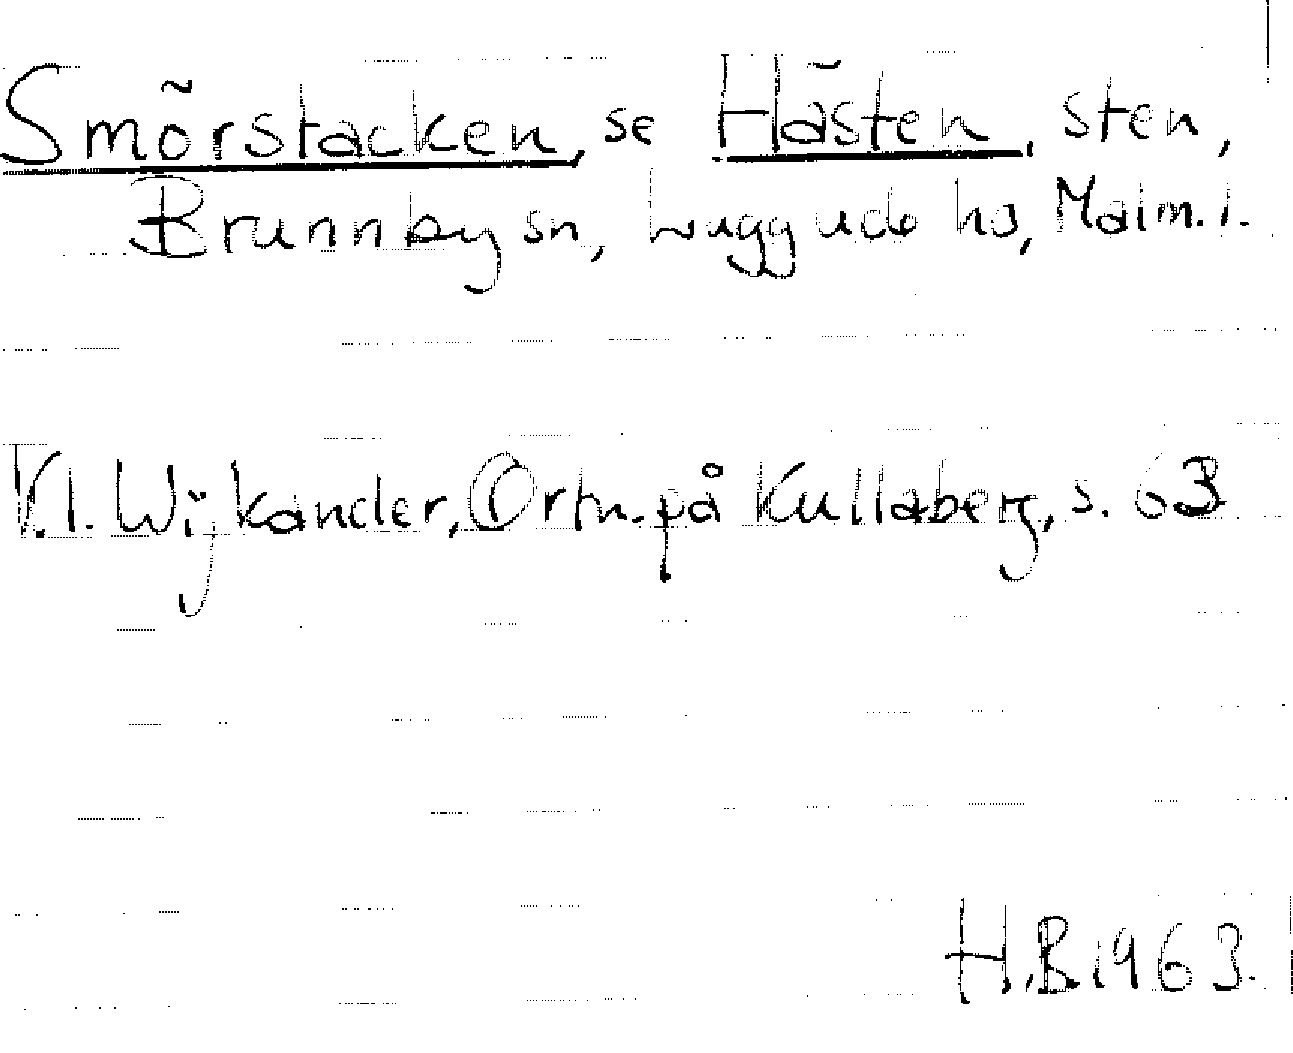 Smörstacken, se Hästen, sten,
Brunnby sn, Luggude hd, Malm. l.
K.I. Wijkander, Ortn. på Kullaberg, s. 63
H.B. 1963.